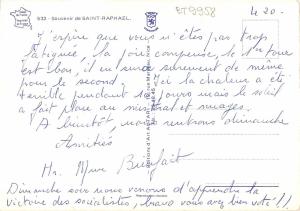 532 - Souvenir de SAINT-RAPHAEL.
ET9958
420-
J'espère que vous n'êtes pas trop
fatiguée, la joie compense, le 1er tour
est bon, il en sera sûrement de même
pour le second. ici la chaleur a été
terrible pendant jours mais le soleil
a fait place au mistral et nuages.
A bientôt, nous rentrons dimanche
Amitiés
Mr. Mme
Dimanche soir nous venons d'apprendre la
victoire des socialistes, bravo vous avez bien voté !!